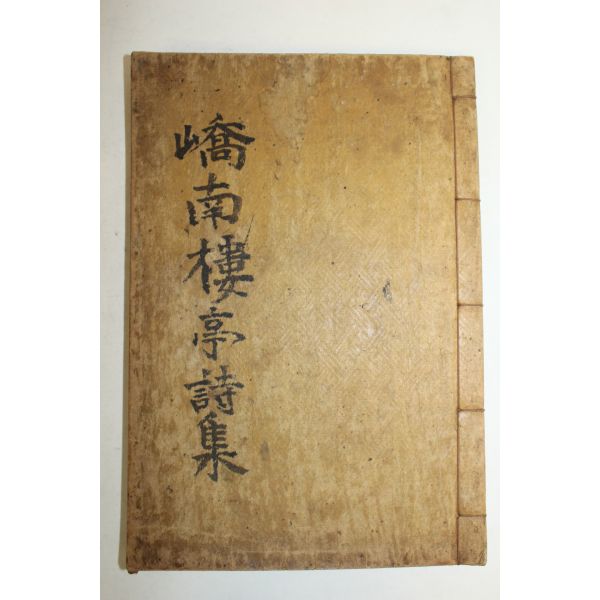 嶠南樓亭詩集